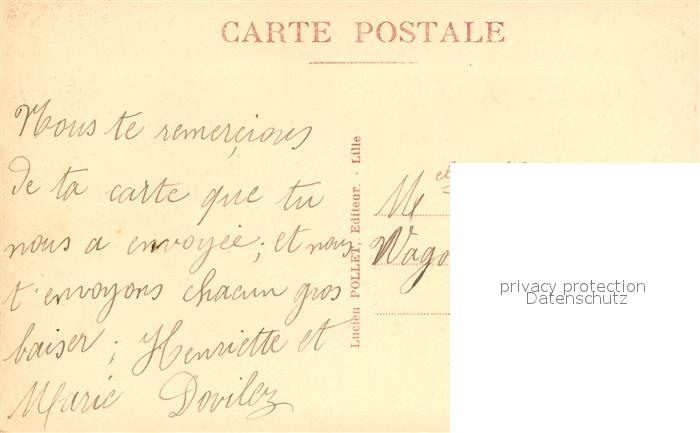 CARTE POSTALE
Nous te remerçions
de ta carte que tu
nous a envoyée; et nous
t'envoyons chacun gros
baiser; Henriette et
Marie Dovilez
Lucien POLLET, Editeur. - Lille
M elle
Wago
privacy protection
Datenschutz